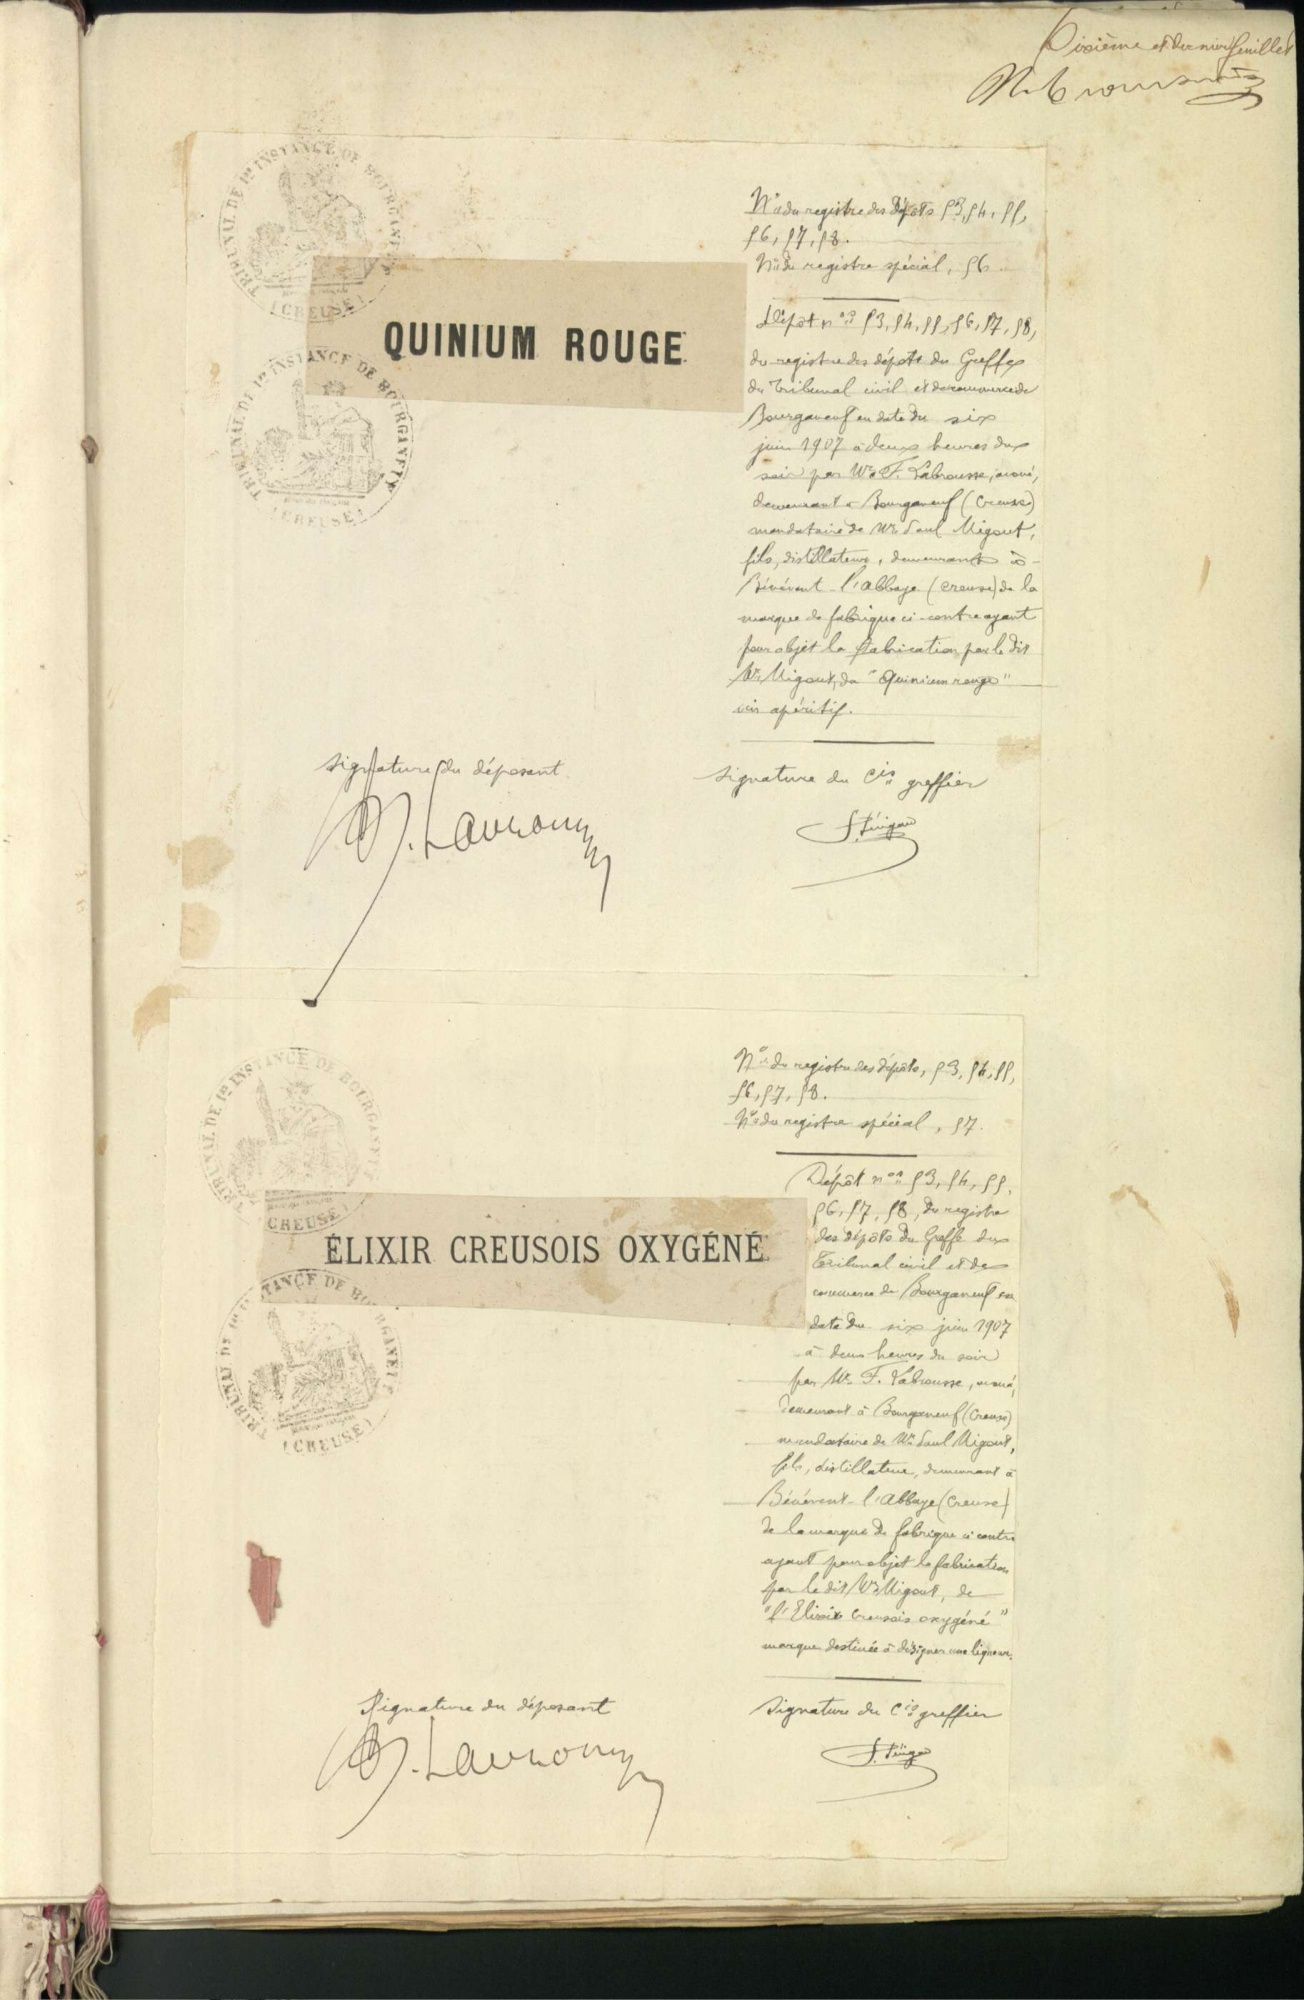 Dixième et dernier feuillet
TRIBUNAL DE 1re INSTANCE DE BOURGANEUF
(CREUSE)
QUINIUM ROUGE
TRIBUNAL DE 1re INSTANCE DE BOURGANEUF
(CREUSE)
Nos du registre des dépôts 53, 54, 55,
56, 57, 58.
No du registre spécial, 56
Dépôt nos 53, 54, 55, 56, 57, 58,
du registre des dépôts du Greffe
du Tribunal civil et de commerce de
Bourganeuf en date du six
juin 1907 à deux heures du
soir par Me F. Labrousse, avoué,
demeurant à Bourganeuf (Creuse)
mandataire de Mr Paul Migout,
fils, distillateur, demeurant à
Bénévent-l'Abbaye (Creuse) de la
marque de fabrique ci-contre ayant
pour objet la fabrication par le dit
Mr Migout, du "Quinium rouge"
vin apéritif.
Signature du déposant
Signature du cis greffier
TRIBUNAL DE 1re INSTANCE DE BOURGANEUF
(CREUSE)
ÉLIXIR CREUSOIS OXYGÉNÉ
TRIBUNAL DE 1re INSTANCE DE BOURGANEUF
(CREUSE)
Nos du registre des dépôts, 53, 54, 55,
56, 57, 58.
No du registre spécial, 57.
Dépôt nos 53, 54, 55,
56, 57, 58, du registre
des dépôts du Greffe du
Tribunal civil et de
commerce de Bourganeuf en
date du six juin 1907
à deux heures du soir
par Me F. Labrousse, avoué,
demeurant à Bourganeuf (Creuse)
mandataire de Mr Paul Migout,
fils, distillateur, demeurant à
Bénévent-l'Abbaye (Creuse)
de la marque de fabrique ci contre
ayant pour objet la fabrication
par le dit Mr Migout, de
"l'Elixir Creusois oxygéné"
marque destinée à désigner une liqueur.
Signature du déposant
Signature du cis greffier